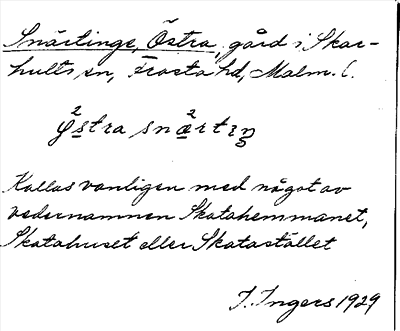 Snärtinge, Östra, gård i Skar-
hults sn, Frosta hd, Malm. l.
östra snärtıŋ
Kallas vanligen med något av
vedernamnen Skatahemmanet,
Skatahuset eller Skatastället
I. Ingers 1929